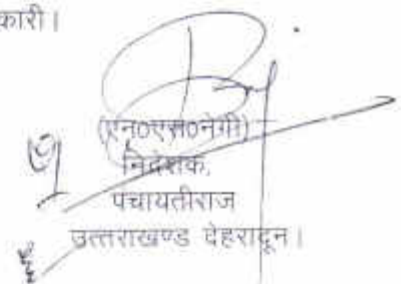 कारी।
(एन०एस०नेगी)
निदेशक,
पंचायतीराज
उत्तराखण्ड देहरादून।